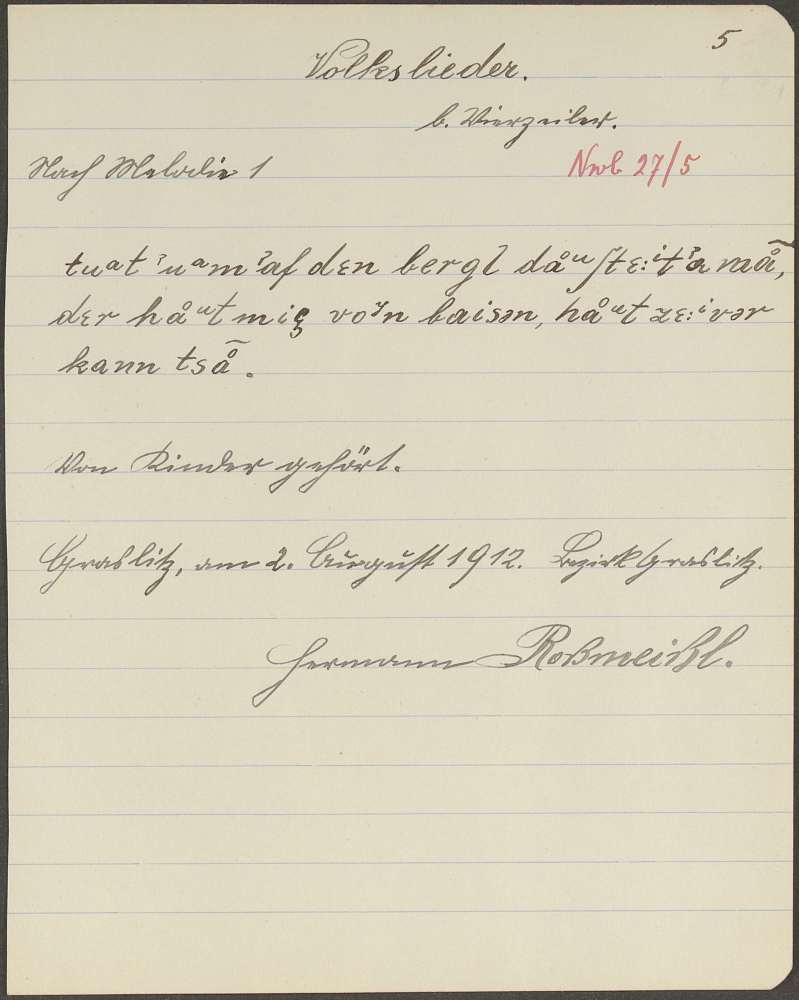 5
Volkslieder.
b. Vierzeiler.
Nach Melodie 1
Nwb 27/5
tuᵃt ˀuᵃm ˀaf dɛn bergl då ᵘ ʃtɛ:ⁱt ˀa må̃,
dɛr håᵘt miç voʳn baisən, håᵘt zɛ:ⁱvər
kann tså̃.
Von Kinder gehört.
Graslitz, am 2. August 1912. Bezirk Graslitz.
Hermann Roßmeißl.